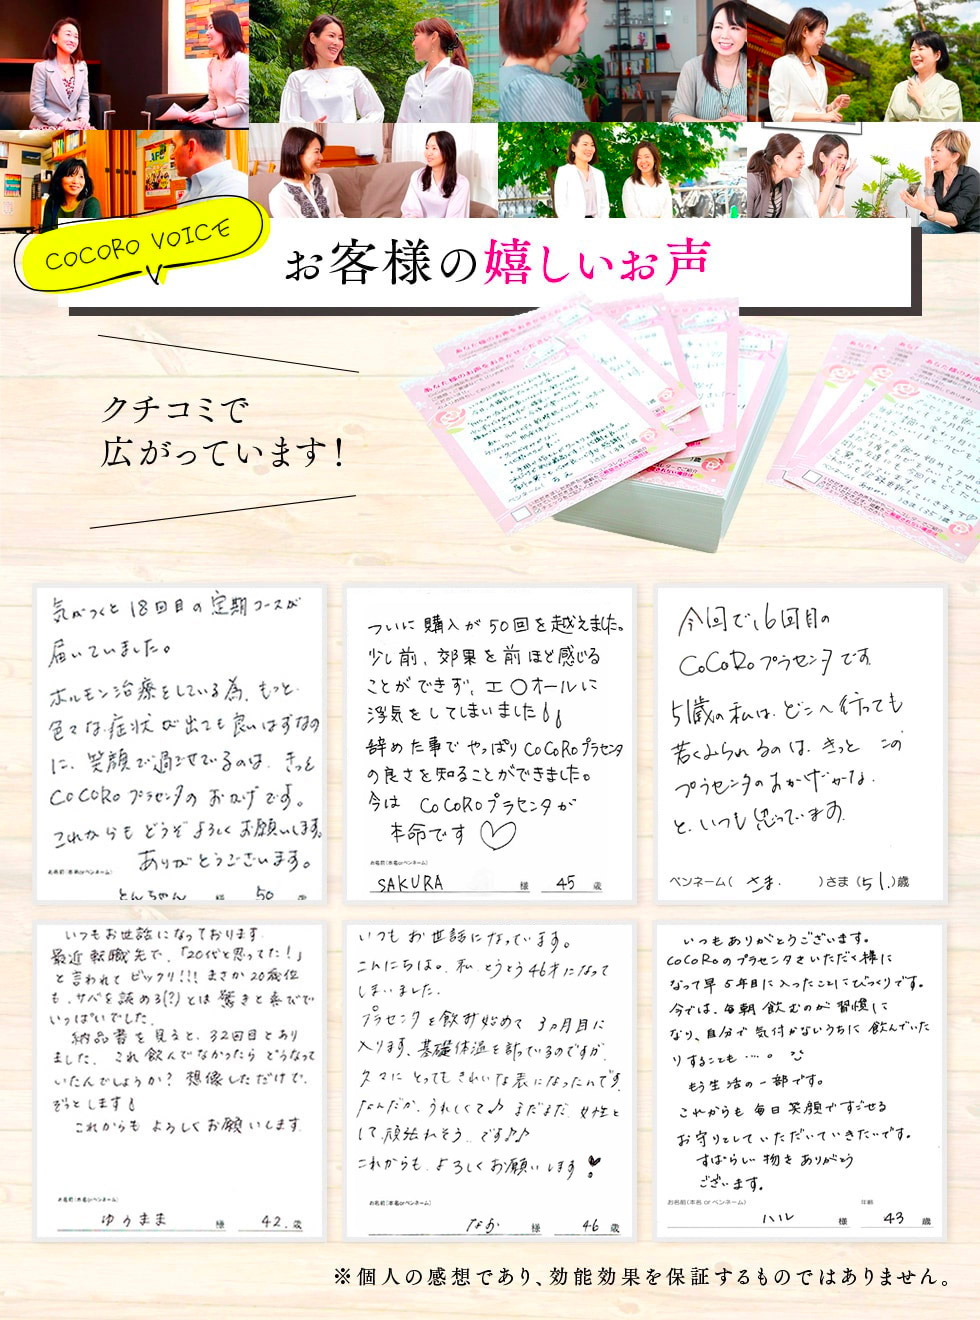 COCORO VOICE
お客様の嬉しいお声
クチコミで
広がっています!
あなた様のお声をおきかせください
気がつくと18回目の定期コースが
届いていました。
ホルモン治療をしている為、もっと
色々な症状が出ても良いはずなの
に、笑顔で過ごせているのは、きっと
COCOROプラセンタのおかげです。
これからもどうぞよろしくお願いします。
ありがとうございます。
お名前(本名orペンネーム)
とんちゃん 様 50 歳
ついに購入が50回を越えました。
少し前、効果を前ほど感じる
ことができず、エ○オールに
浮気をしてしまいました!!
辞めた事でやっぱりCOCOROプラセンタ
の良さを知ることができました。
今は COCOROプラセンタが
本命です♡
お名前(本名orペンネーム)
SAKURA 様 45 歳
今回で16回目の
COCOROプラセンタです
51歳の私は、どこへ行っても
若くみられるのは、きっと この
プラセンタのおかげかな、
と、いつも思っています。
ペンネーム( さま. )さま(51.)歳
いつもお世話になっております
最近転職先で、「20代と思ってた!」
と言われてビックリ!!! まさか20歳位
も、サバを読める(?)とは驚きと喜びで
いっぱいでした。
納品書を見ると、32回目とあり
ました。これ飲んでなかったらどうなって
いたんでしょうか?想像しただけで、
ぞっとします!
これからもよろしくお願いします
お名前(本名orペンネーム)
ゆうまま 様 42. 歳
いつもお世話になっています。
こんにちは。私とうとう46才になって
しまいました.
プラセンタを飲み始めて3カ月目に
入ります、基礎体温を計っているのですが、
久々にとってもきれいな表になったんです
なんだか、うれしくて♪まだまだ女性と
して、頑張れそう..です♪♪
これからも、よろしくお願いします❣
お名前(本名orペンネーム)
なお 様 46 歳
いつもありがとうございます。
COCOROのプラセンタをいただく様に
なって早5年目に入ったことにびっくりです。
今では、毎朝飲むのが習慣に
なり、自分で気付かないうちに飲んでいた
りすることも…。
もう生活の一部です。
これからも毎日笑顔ですごせる
お守りとしていただいていきたいです。
すばらしい物をありがとう
ございます。
お名前(本名 or ペンネーム) 年齢
ハル 様 43 歳
※個人の感想であり、効能効果を保証するものではありません。